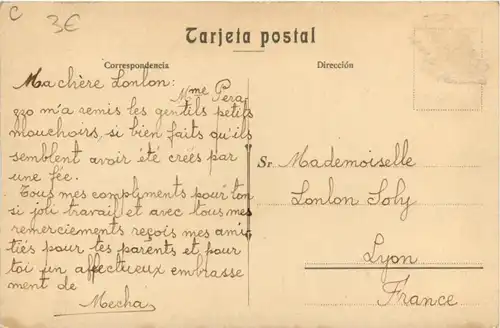 C 3€
Tarjeta postal
Correspondencia
Dirección
Ma chère Lonlon :
Mme Pera
zzo m'a remis les gentils petits
mouchoirs, si bien faits qu'ils
semblent avoir été créés par
une fée.
Tous mes compliments pour ton
si joli travail et avec tous mes
remerciements reçois mes ami
tiés pour tes parents et pour
toi un affectueux embrasse
ment de
Mecha
Sr. Mademoiselle
Lonlon Joly
Lyon
France